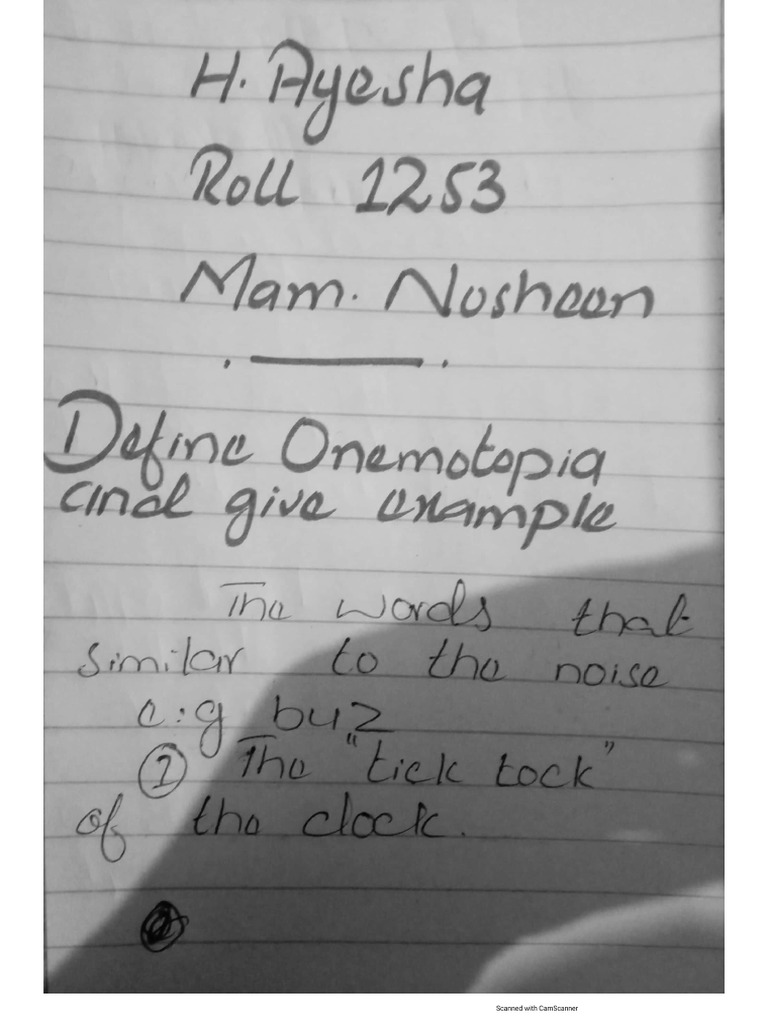 H. Ayesha
Roll 1253
Mam. Nosheen
Define Onemotopia
and give example
The words that
similar to the noise
e.g buz
① The "tick tock"
of the clock.
Scanned with CamScanner